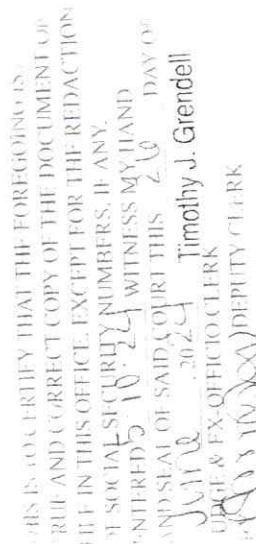 THIS IS TO CERTIFY THAT THE FOREGOING IS
TRUE AND CORRECT COPY OF THE DOCUMENT ON
FILE IN THIS OFFICE, EXCEPT FOR THE REDACTION
OF SOCIAL SECURITY NUMBERS, IF ANY.
ENTERED 5 10 24 WITNESS MY HAND
AND SEAL OF SAID COURT THIS 26 DAY OF
June 2024 Timothy J. Grendell
JUDGE & EX-OFFICIO CLERK
DEPUTY CLERK